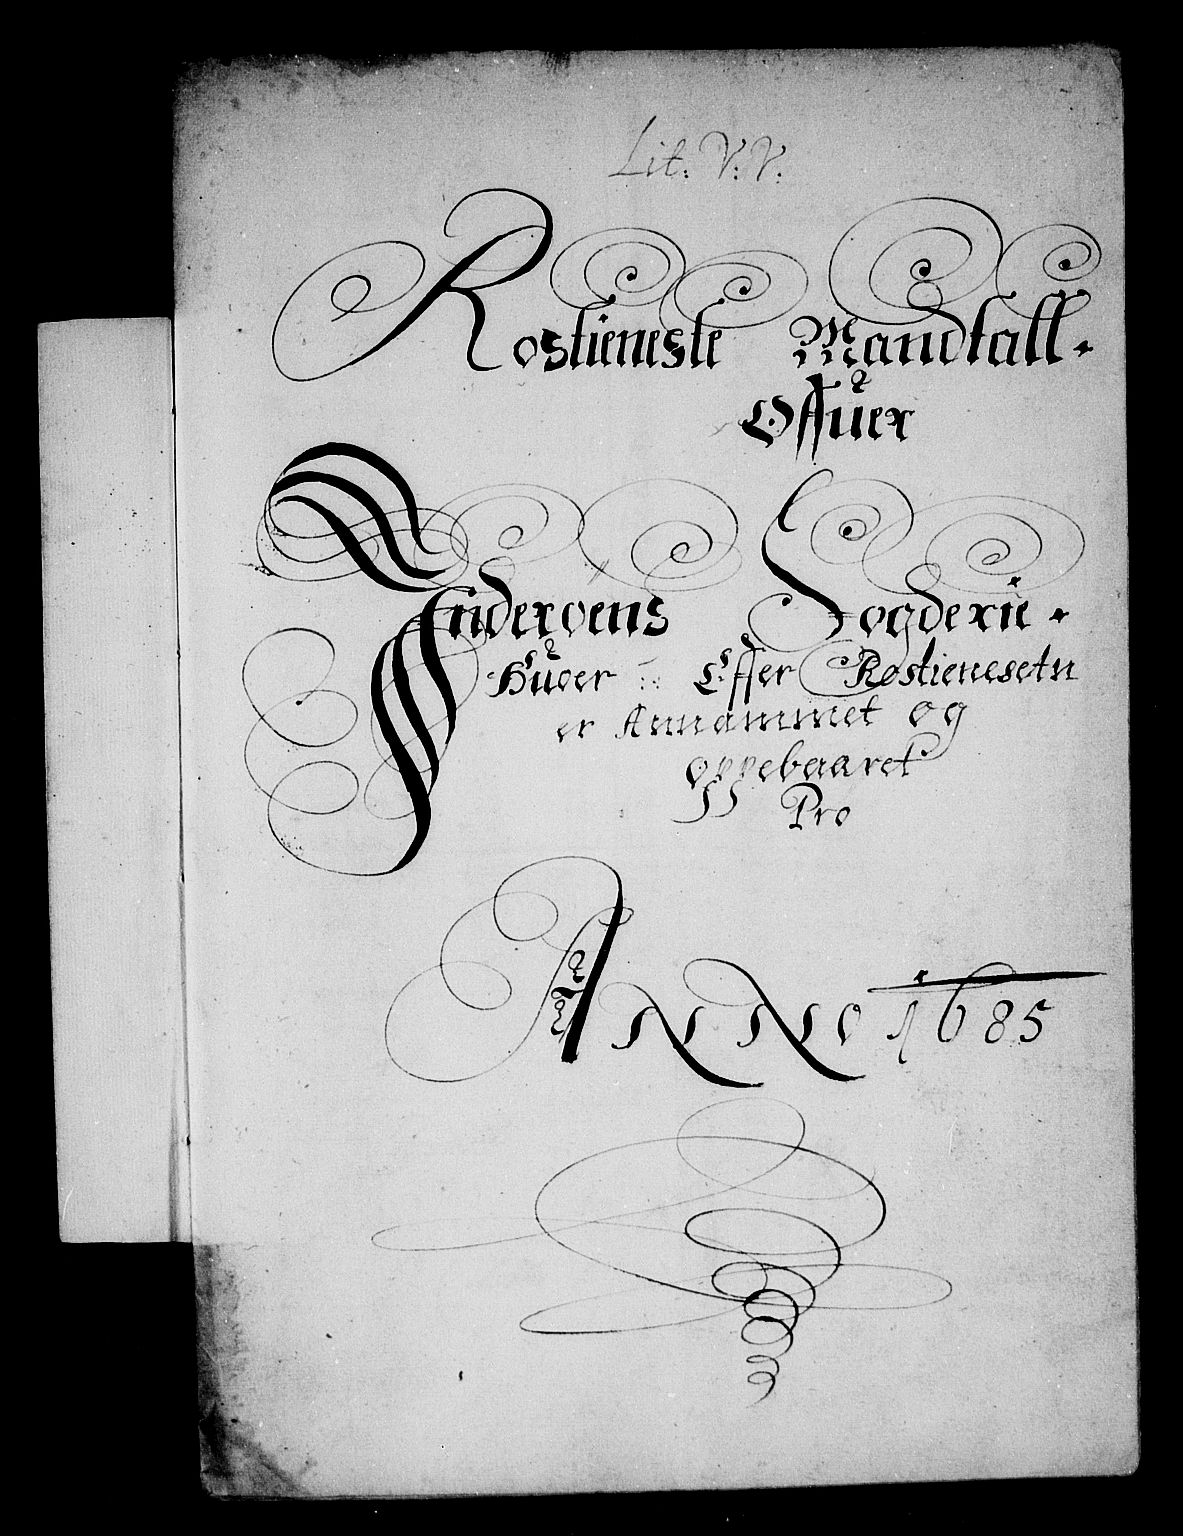 Lit: V: V:
Rostieneste Mandtall.
Offuer
Inderøens Fogderie.
Huoer :: Effter Rostienesetn
er Annammet og
oppebaaret
Pro
ANNO 1685